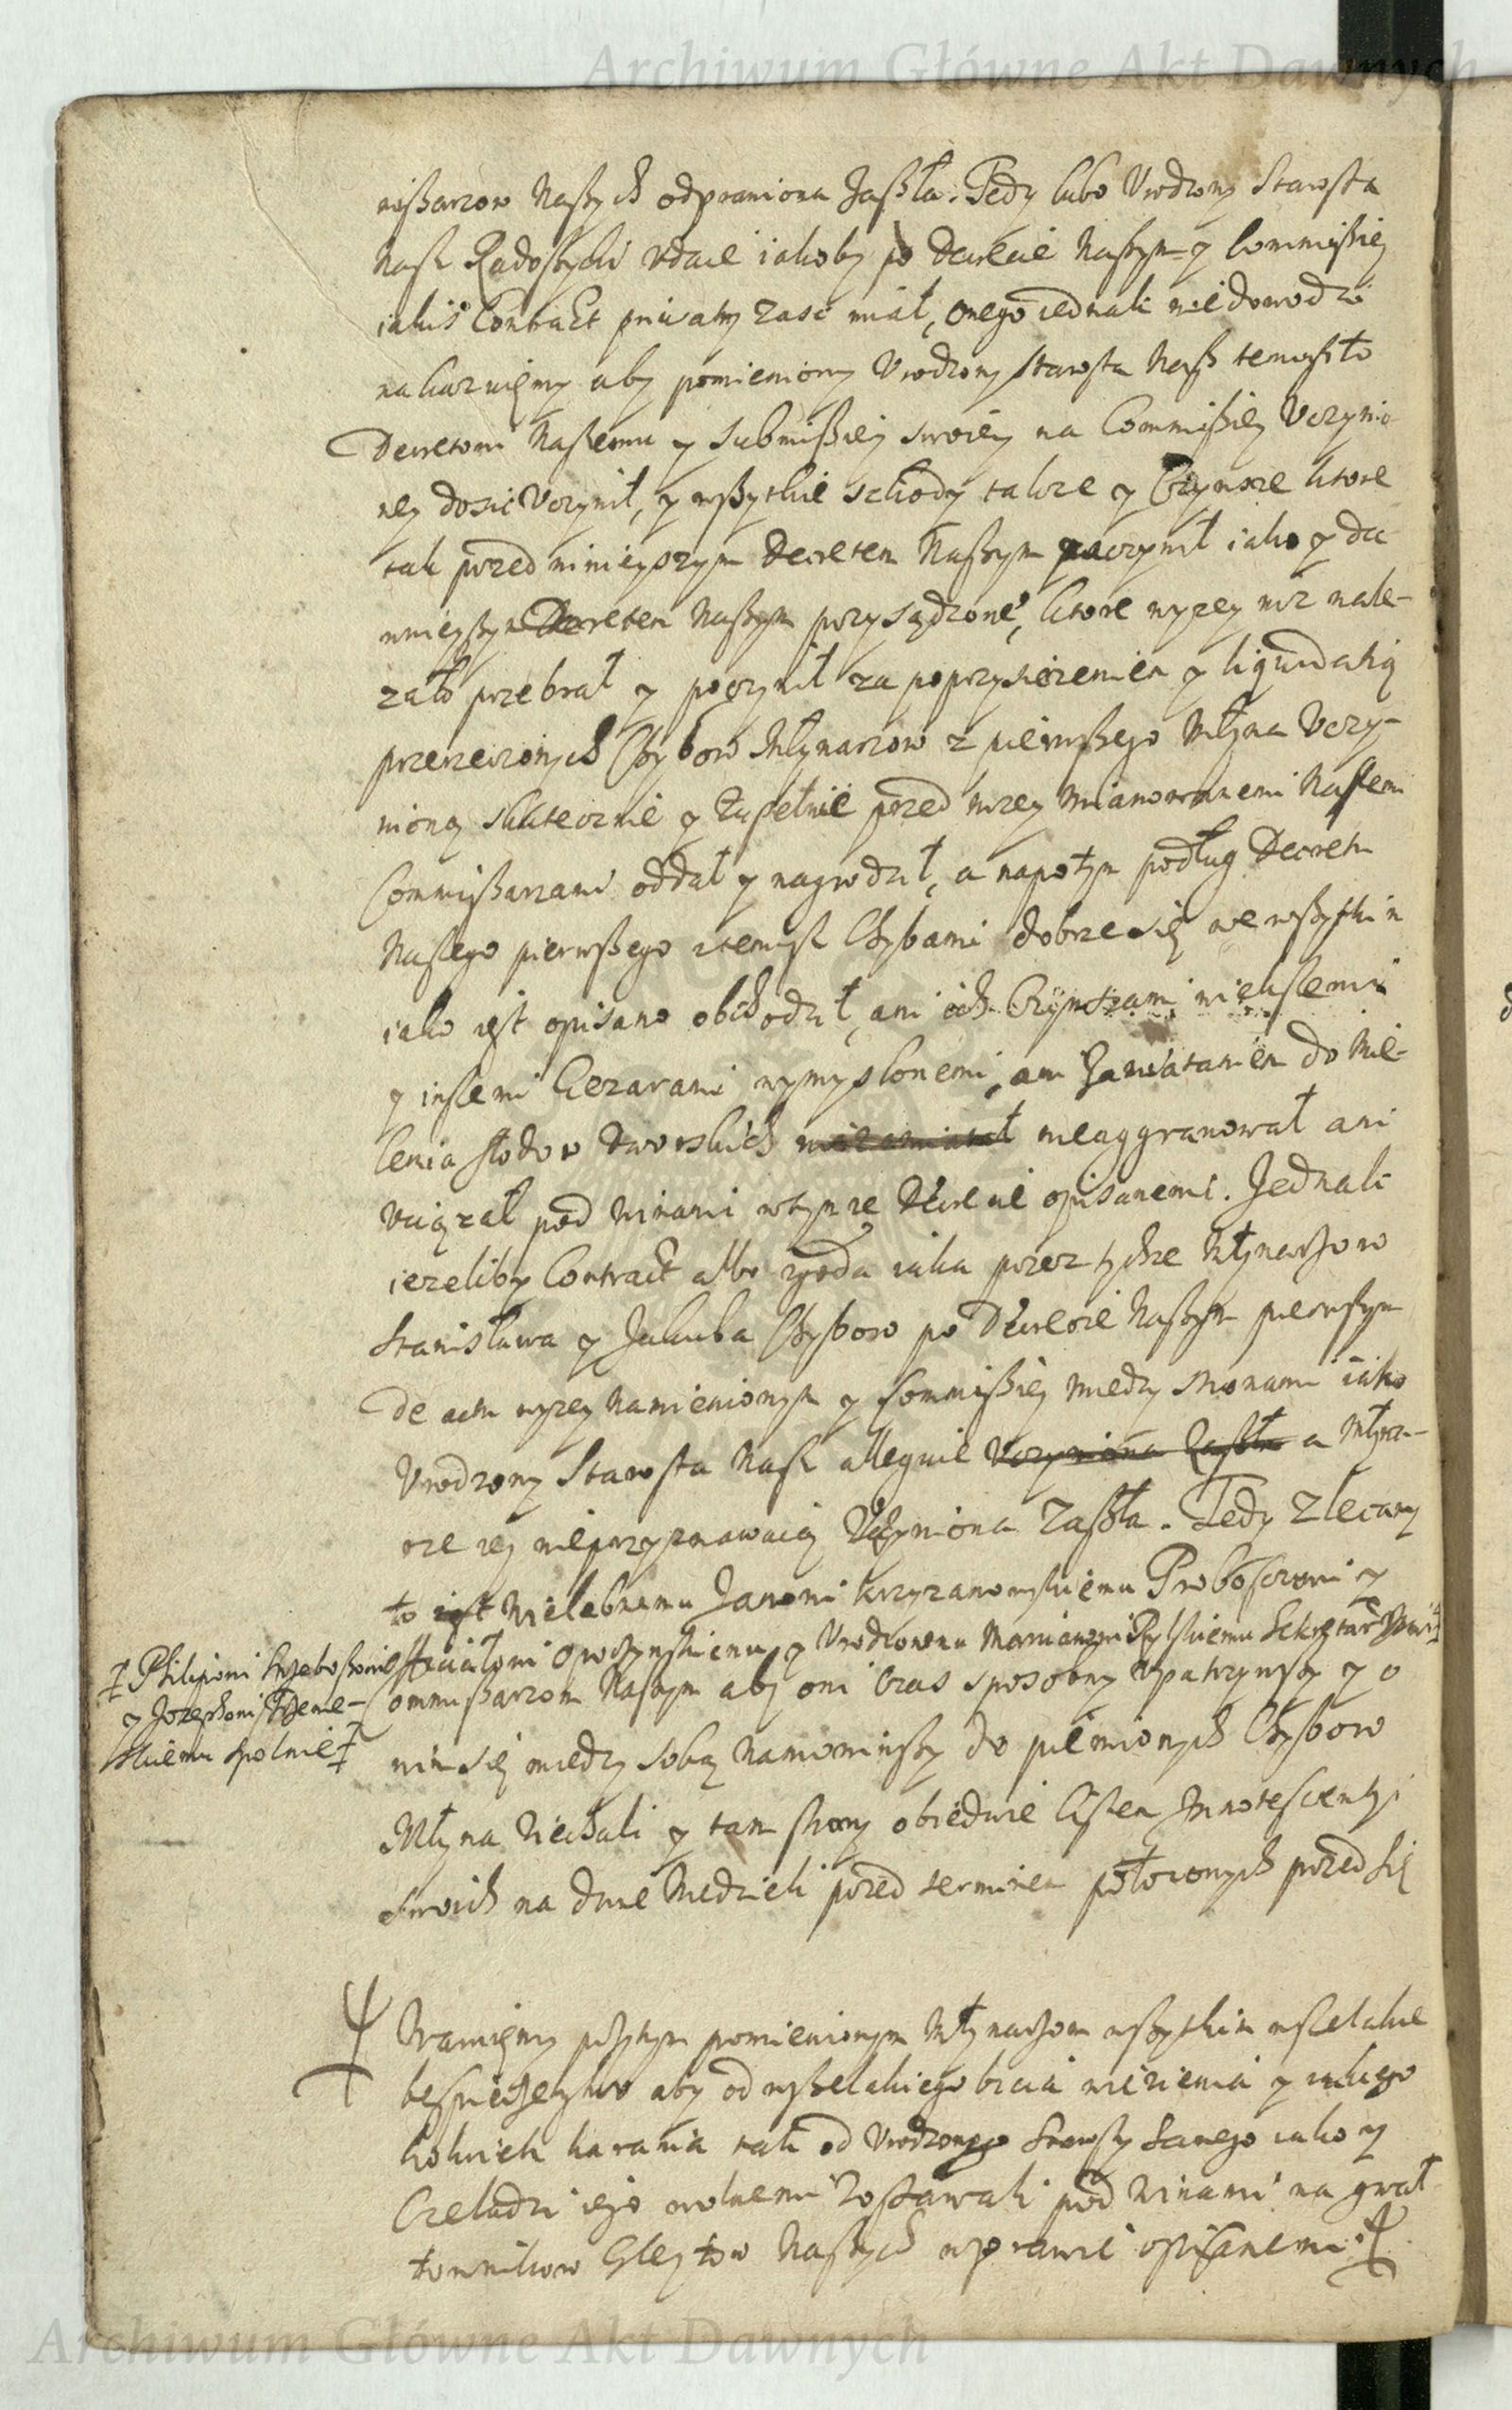 Archiwum Główne Akt Dawnych
missarzow Naszych odprawiona zaszła. Tedy lubo Vrodzony Starosta
Nasz Radoszycki vdaie iakoby po Decrecie Naszym y Commissiey
iakis Contract priwatny zasc miał, onego iednak nie dowodzi
nakazuięmy aby pomieniony Vrodzony Starosta Nasz temusz to
Decretowi Naszemu y Submissiey swoiey na Commissiey Vczynio-
ney dosic Vczynił, y wszytkie szkody takze y Czynsze ktore
tak przed ninieyszym Decretem Naszym poczynił iako y du
ninieyszym Decretem Naszym przysądzone, ktore wyzey niz nale-
zało przebrał y poczynił za poprzysięzeniem y liquidatią
przerzeczonych Chybow Młynarzow z pierwszego Młyna Vczy-
nioną skutecznie y zupełnie przed wzey mianowanemi Naszemi
Commissarzami oddał y nagrodził, a napotym podług Decretu
Naszego pierwszego ztemisz Chybami dobrze się we wszytkim
iako iest opisano obchodził, ani ich Czynszami niekszemi
y inszemi Ciezarami wymyslonemi, ani zawiataniem do Mie-
lenia słodow dworskich nieaggrauował ani
vciązał pod winami wtymze Decrecie opisanemi. Jednak
iezeliby Contract albo zgoda iaka przez tychze Młynarzow
Stanisława y Jakuba Chybow po Decrecie Naszym pierwszym
De actu wyzey namienionym y Commissiey miedzy stronami iako
Vrodzony Starosta Nasz alleguie Vczyniona Zaszła a Młyna-
rze iey nieprzyznawaią Vczyniona Zaszła. Tedy zlecamy
to iest Wielebnemu Janowi Krzyzanowskiemu Proboszczowi y
Officiałowi Opoczynskiemu, y Vrodzonemu Marcianowi Rylskiemu Sekretarzowi
‡ Philipowi
y Jozephowi
skiemu spolnie ‡
Commissarzom Naszym aby oni czas sposobny vpatrzywszy y o
nim się miedzy sobą namowiwszy do pomienionych Chybow
Młyna ziechali y tam strony obiedwie listem Innotescentyi
swoich na dwie Niedzieli przed terminem połozonych przed się
Waruięmy przytym pomienionym Młynarzom wszytkim wszelakie
bespieczenstwo aby od wszelakiego bicia więzienia y iakiego
kolwiek karania tak od Vrodzonego Starosty Samego iako y
Czeladzi iego wolnemi zostawali pod winami na gwał
townikow Gleytow Naszych wprawie opisanemi.
Archiwum Główne Akt Dawnych